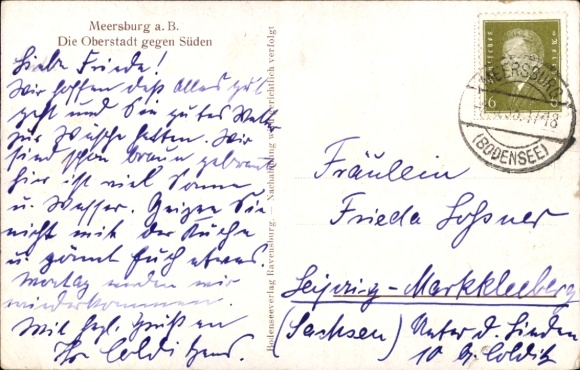 Meersburg a. B.
Die Oberstadt gegen Süden
Liebe Friede!
Wir hoffen daß Alles gut
geht und Sie gutes Wetter
zur Wäsche hatten. Wir
sind schon braun gebrannt
hier ist viel Sonne
u. Wasser. Geizen Sie
nicht mit der Küche
u gönnt Euch etwas.
Montag werden wir
wiederkommen.
Mit hzl. Grüßen
Ihr Colditzens.
Bodenseeverlag Ravensburg. — Nachahmung wird gerichtlich verfolgt
6
MEERSBURG
(BODENSEE)
Fräulein
Frieda Loßner
Leipzig-Markkleeberg
(Sachsen) Unter d. Linden
10 b. Colditz